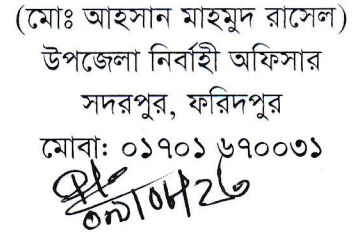 (মোঃ আহসান মাহমুদ রাসেল)
উপজেলা নির্বাহী অফিসার
সদরপুর, ফরিদপুর
মোবা: ০১৭০১ ৬৭০০৩১